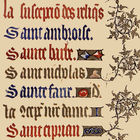 la susception des reliqs
Saint ambroise.
Sainte barbe.
Saint nicholas
Sainte fare.
la 9cept' nře dame
Saint ciprian